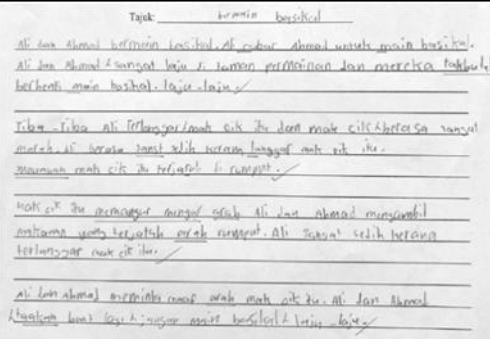 Tajuk: bermain basikal
Ali dan Ahmad bermain basikal. Ali cabar Ahmad untuk main basikal.
Ali dan Ahmad sangat laju di taman permainan dan mereka
berhenti main basikal. laju-laju
Tiba-Tiba Ali Terlanggar mak cik itu dan mak cik berasa sangat
marah. Ali berasa sedih kerana langgar mak cik itu.
mak cik itu terjatuh di rumput.
mak cik itu Ali dan Ahmad mengambil
yang terjatuh arah rumput. Ali sangat sedih kerana
terlanggar mak cik itu.
Ali dan Ahmad meminta maaf arah mak cik itu. Ali dan Ahmad
buat lagi main basikal laju-laju